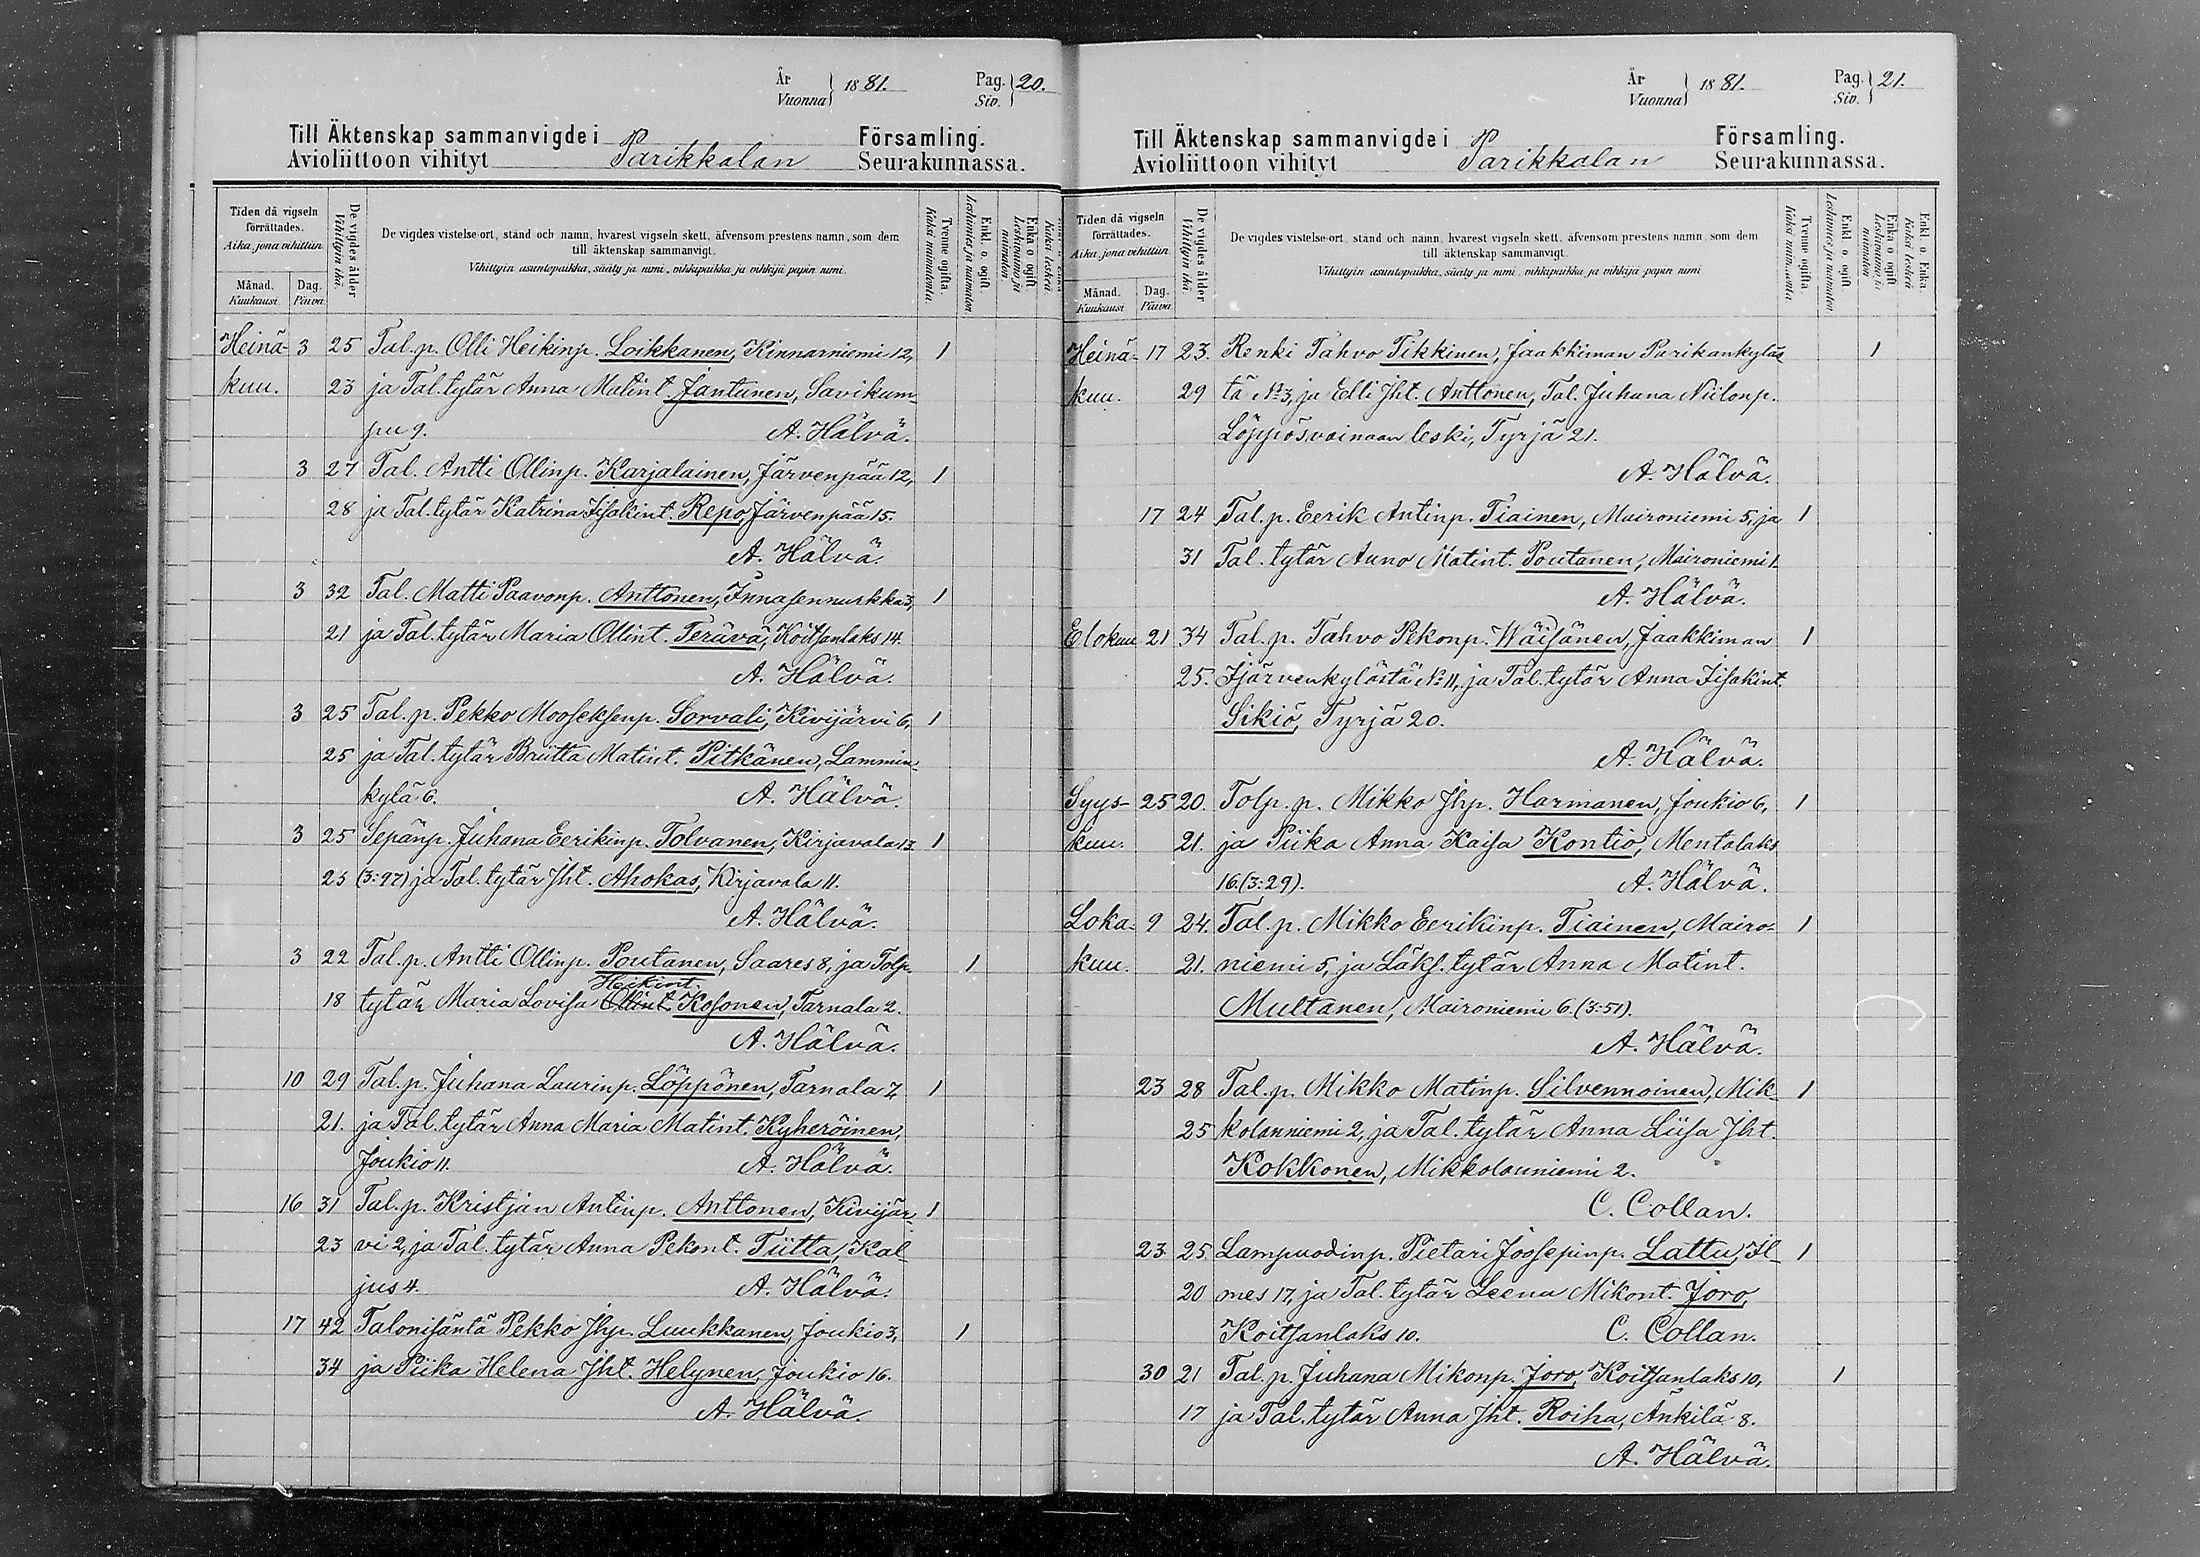 År
Vuonna } 1881. Pag.
Siv. } 20.
Till Äktenskap sammanvigde i Parikkalan Församling.
Avioliittoon vihityt Seurakunnassa.
Tiden då vigseln förrättades.
Aika, jona vihittiin
Månad.
Kuukausi
Dag.
Päivä
De vigdes ålder
Vihittyin ikä.
De vigdes vistelse-ort, stånd och namn, hvarest vigseln skett, äfvensom prestens namn, som dem
till äktenskap sammanvigt.
Vihittyin asuntopaikka, sääty ja nimi, vihkipaikka ja vihkijä papin nimi.
Tvenne ogifta.
Kaksi naimatonta.
Enkl. o. ogift.
Leskimies ja naimaton
Enka o. ogift
Leskivaimo ja naimaton
Heinä- 3 25 Tal. p. Olli Heikinp. Loikkanen, Kinnarniemi 12, 1
kuu. 23 ja Tal. tytär Anna Matint. Jantunen, Savikum-
pu 9. A. Hälvä.
3 27 Tal. Antti Ollinp. Karjalainen, Järvenpää 12, 1
28 ja Tal. tytär Katrina Iisakint. Repo, Järvenpää 15.
A. Hälvä.
3 32 Tal. Matti Paavonp. Anttonen, Innasennurkka 3, 1
21 ja Tal. tytär Maria Ollint. Terävä, Koitsanlaks 14.
A. Hälvä.
3 25 Tal. p. Pekko Mooseksenp. Sorvali, Kivijärvi 6, 1
25 ja Tal. tytär Briitta Matint. Pitkänen, Lammin-
kylä 6. A. Hälvä.
3 25 Sepänp. Juhana Eerikinp. Tolvanen, Kirjavala 13 1
25 (3:97) ja Tal. tytär Jht. Ahokas, Kirjavala 11.
A. Hälvä.
3 22 Tal. p. Antti Ollinp. Poutanen, Saares 8, ja Tolp. 1
Heikint.
18 tytär Maria Lovisa Ollint. Kosonen, Tarnala 2.
A. Hälvä.
10 29 Tal. p. Juhana Laurinp. Löppönen, Tarnala 7, 1
21. ja Tal. tytär Anna Maria Matint. Kyheröinen,
Joukio 11. A. Hälvä.
16 31 Tal. p. Kristjan Antinp. Anttonen, Kivijär- 1
23 vi 2, ja Tal. tytär Anna Pekont. Tiitta, Kal-
jus 4. A. Hälvä.
17 42 Talonisäntä Pekko Jhp. Luukkanen, Joukio 3, 1
34 ja Piika Helena Jht. Helynen, Joukio 16.
A. Hälvä.
År
Vuonna } 1881. Pag.
Siv. } 21.
Till Äktenskap sammanvigde i Parikkalan Församling.
Avioliittoon vihityt Seurakunnassa.
Tiden då vigseln förrättades.
Aika, jona vihittiin
Månad.
Kuukausi
Dag.
Päivä
De vigdes ålder
Vihittyin ikä.
De vigdes vistelse-ort, stånd och namn, hvarest vigseln skett, äfvensom prestens namn, som dem
till äktenskap sammanvigt.
Vihittyin asuntopaikka, sääty ja nimi, vihkipaikka ja vihkijä papin nimi
Tvenne ogifta.
Kaksi naimatonta
Enkl. o. ogift.
Leskimies ja naimaton
Enka o. ogift
Leskivaimo ja naimaton
Enkl. o. Enka.
Kaksi leskeä
Heinä- 17 23. Renki Tahvo Tikkinen, Jaakkiman Parikankyläs 1
kuu. 29 tä No 3, ja Elli Jht. Anttonen, Tal. Juhana Niilonp.
Löppösvainaan leski, Tyrjä 21.
A. Hälvä.
17 24 Tal. p. Eerik Antinp. Tiainen, Maironiemi 5, ja 1
31 Tal. tytär Auno Matint. Poutanen, Maironiemi 1.
A. Hälvä.
Elokuu 21 34 Tal. p. Tahvo Pekonp. Wäisänen, Jaakkiman 1
25. Ijärvenkylästä No 11, ja Tal. tytär Anna Iisakint.
Sikiö, Tyrjä 20.
A. Hälvä.
Syys- 25 20. Tolp. p. Mikko Jhp. Harmanen, Joukio 6, 1
kuu. 21. ja Piika Anna Kaisa Kontio, Mentalaks
16. (3:29). A. Hälvä.
Loka- 9 24. Tal. p. Mikko Eerikinp. Tiainen, Mairo- 1
kuu. 21. niemi 5, ja Läks. tytär Anna Matint.
Multanen, Maironiemi 6. (3:51).
A. Hälvä.
23 28 Tal. p. Mikko Matinp. Silvennoinen, Mik- 1
25 kolanniemi 2, ja Tal. tytär Anna Liisa Jht.
Kokkonen, Mikkolanniemi 2.
C. Collan.
23 25. Lampuodinp. Pietari Joosepinp. Lattu, Il- 1
20 mes 17, ja Tal. tytär Leena Mikont. Joro,
Koitsanlaks 10. C. Collan.
30 21 Tal. p. Juhana Mikonp. Joro, Koitsanlaks 10, 1
17 ja Tal. tytär Anna Jht. Roiha, Änkilä 8.
A. Hälvä.